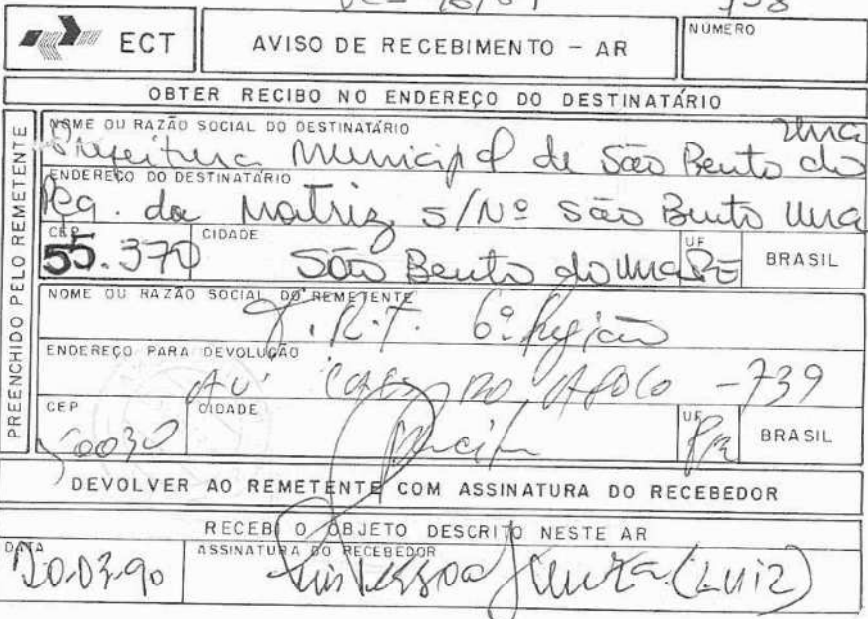 738
ECT
AVISO DE RECEBIMENTO - AR
NÚMERO
OBTER RECIBO NO ENDEREÇO DO DESTINATÁRIO
PREENCHIDO PELO REMETENTE
NOME OU RAZÃO SOCIAL DO DESTINATÁRIO
Prefeitura Municipal de São Bento do Una
ENDEREÇO DO DESTINATÁRIO
Pça. da Matriz S/Nº São Bento Una
CEP
CIDADE
UF
55.370 São Bento do Una PE BRASIL
NOME OU RAZÃO SOCIAL DO REMETENTE
T.R.T. 6ª Região
ENDEREÇO PARA DEVOLUÇÃO
AV. CAES DO APOLO - 739
CEP
CIDADE
UF
50030 Recife BRASIL
DEVOLVER AO REMETENTE COM ASSINATURA DO RECEBEDOR
RECEBI O OBJETO DESCRITO NESTE AR
DATA
ASSINATURA DO RECEBEDOR
20.03.90 (LUIZ)